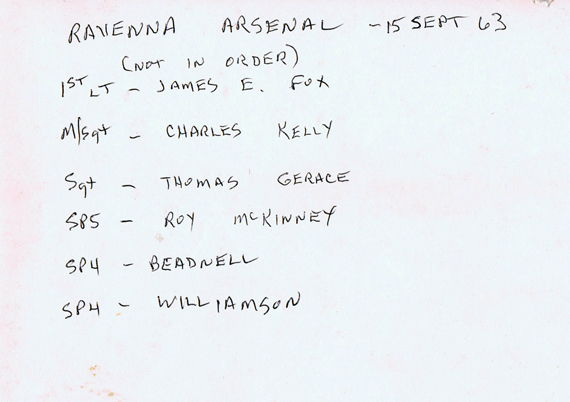 RAVENNA ARSENAL - 15 SEPT 63
(NOT IN ORDER)
1ST LT - JAMES E. FOX
M/Sgt - CHARLES KELLY
Sgt - THOMAS GERACE
SP5 - ROY McKINNEY
SP4 - BEADNELL
SP4 - WILLIAMSON